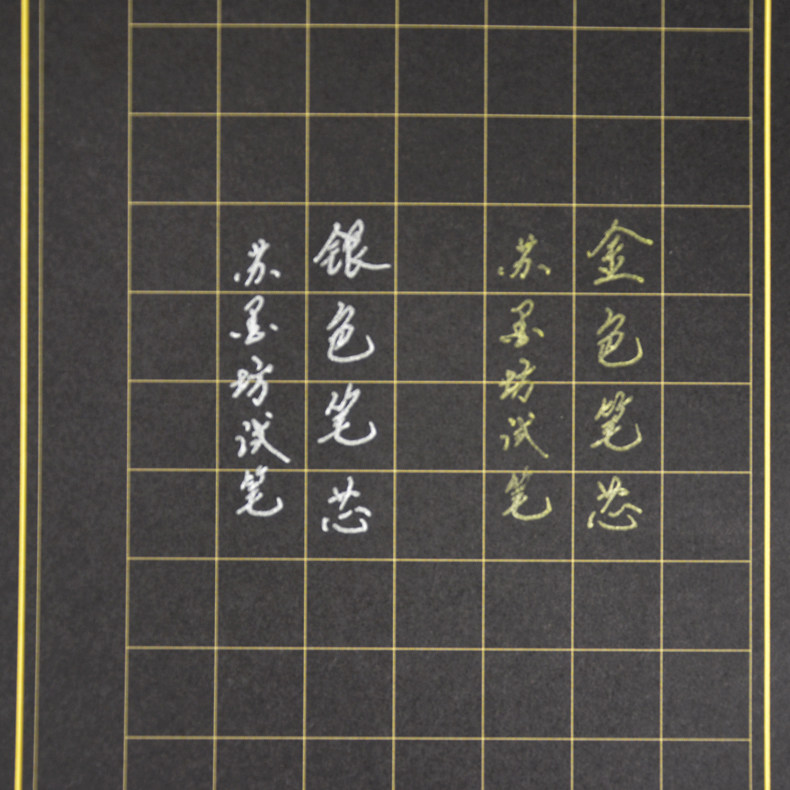 金色笔芯
苏墨坊试笔
银色笔芯
苏墨坊试笔